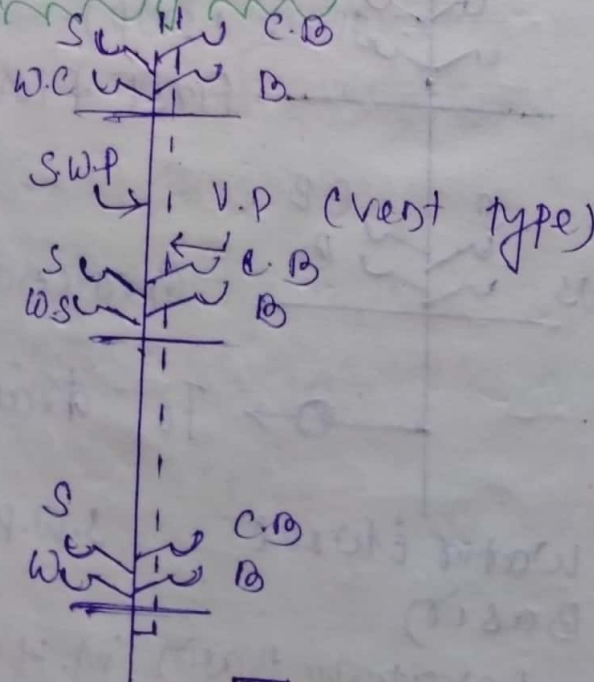 S C.B
W.C B
S.W.P
V.P (vent type)
S C.B
W.S B
S
C.B
W B